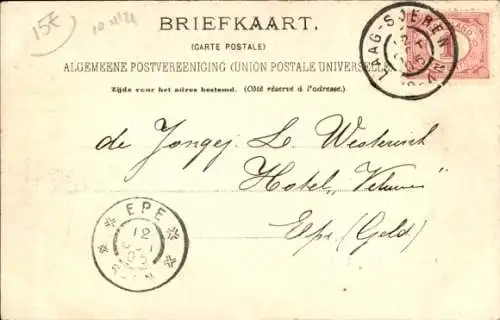 15€
BRIEFKAART.
(CARTE POSTALE)
ALGEMEENE POSTVEREENIGING (UNION POSTALE UNIVERSELLE)
Zijde voor het adres bestemd. (Côté réservé à l'adresse.)
LAAG-SOEREN
12
05
de Jongej. L. Westerwijk
Hotel „Veluwe"
Epe. (Geld)
EPE
12
05